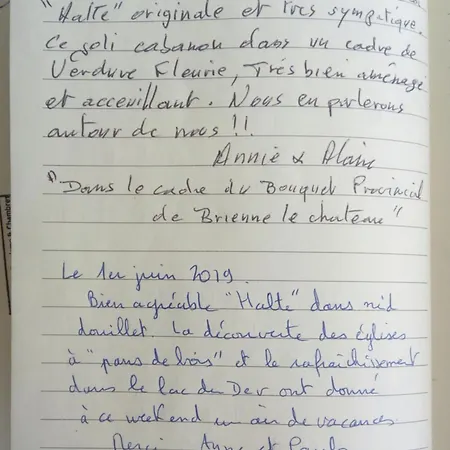 "Halte" originale et très sympatique.
Ce joli cabanon dans un cadre de
Verdure Fleurie, Très bien aménagé
et acceuillant. Nous en parlerons
autour de nous !!
Annie & Alain
"Dans le cadre du Bouquet Provincial
de Brienne le chateau"
Le 1er juin 2019.
Bien agréable "Halte" dans nid
douillet. La découverte des églises
à "pans de bois" et le rafraîchissement
dans le lac du Der ont donné
à ce weekend un air de vacances
Merci Anne et